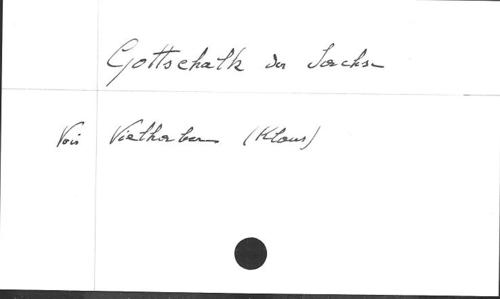 Gottschalk der Sachse
Voir Vielhaber (Klaus)